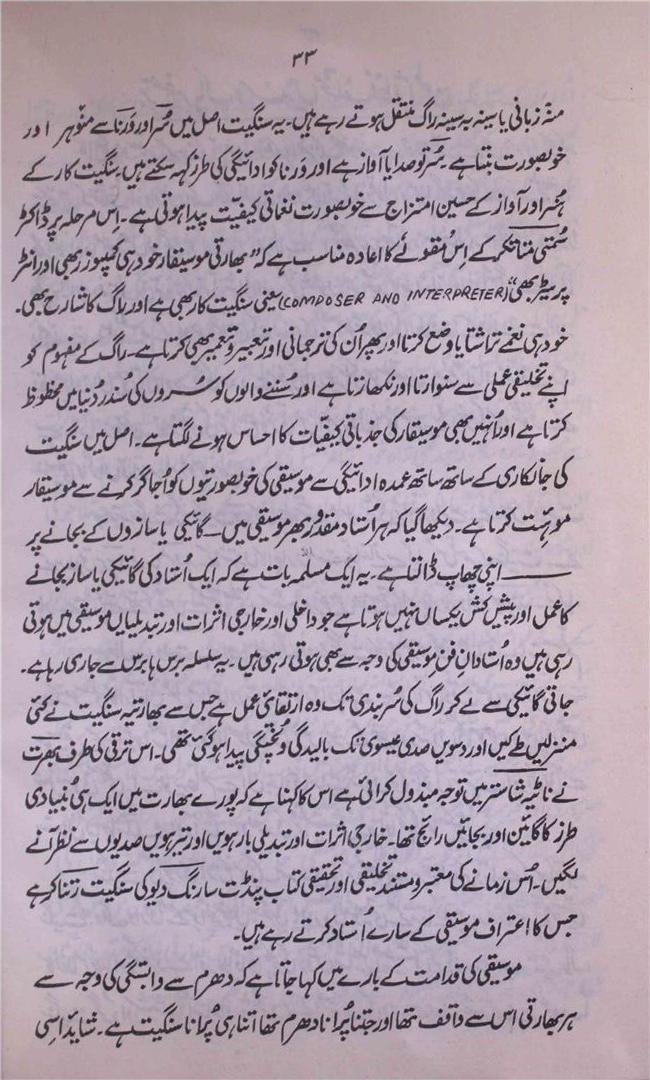 ۳۳
منہ زبانی یا سینہ بہ سینہ راگ منتقل ہوتے رہے ہیں۔ یہ سنگیت اصل میں سُر اور وَرنا سے منوہر اور
خوبصورت بنتا ہے۔ سُر تو صدا یا آواز ہے اور وَرنا کو ادائیگی کی طرز کہہ سکتے ہیں۔ سنگیت کار کے
ہُنر اور آواز کے حسین امتزاج سے خوبصورت نغماتی کیفیّت پیدا ہوتی ہے۔ اِس مرحلہ پر ڈاکٹر
سُمتی متاتکر کے اِس مقولے کا اعادہ مناسب ہے کہ "بھارتی موسیقار خود ہی کمپوزر بھی اور انٹر
پریٹر بھی" (COMPOSER AND INTERPRETER) یعنی سنگیت کار بھی ہے اور راگ کا شارح بھی۔
خود ہی نغمے تراشتا یا وضع کرتا اور پھر اُن کی ترجمانی اور تعبیر و تعمیر بھی کرتا ہے۔ راگ کے مفہوم کو
اپنے تخلیقی عملی سے سنوارتا اور نکھارتا ہے اور سُننے والوں کو سُروں کی سُندر دُنیا میں محظوظ
کرتا ہے اور اُنہیں بھی موسیقار کی جذباتی کیفیّات کا احساس ہونے لگتا ہے۔ اصل میں سنگیت
کی جانکاری کے ساتھ ساتھ عمدہ ادائیگی سے موسیقی کی خوبصورتیوں کو اُجاگر کرنے سے موسیقار
موہِت کرتا ہے۔ دیکھا گیا کہ ہر اُستاد مقدُور بھر موسیقی میں ــ گائیکی یا سازوں کے بجانے پر
ــــــ اپنی چھاپ ڈالتا ہے۔ یہ ایک مسلمہ بات ہے کہ ایک اُستاد کی گائیکی یا ساز بجانے
کا عمل اور پیش کش یکساں نہیں ہوتا ہے جو داخلی اور خارجی اثرات اور تبدیلیاں موسیقی میں ہوتی
رہی ہیں وہ اُستادانِ فنِ موسیقی کی وجہ سے بھی ہوتی رہی ہیں۔ یہ سلسلہ برس ہا برس سے جاری رہا ہے۔
جاتی گائیکی سے لے کر راگ کی سُر بندی تک وہ ارتقائی عمل ہے جس سے بھارتیہ سنگیت نے کئی
منزلیں طے کیں اور دسویں صدی عیسوی تک بالیدگی و پُختگی پیدا ہو گئی تھی۔ اس ترقی کی طرف بھرت
نے ناٹیہ شاستر میں توجہ مبذول کرائی ہے اس کا کہنا ہے کہ پورے بھارت میں ایک ہی بُنیادی
طرز کا گائین اور بجائیں رائج تھا۔ خارجی اثرات اور تبدیلی بارہویں اور تیرہویں صدیوں سے نظر آنے
لگیں۔ اُس زمانے کی معتبر و مستند تخلیقی اور تحقیقی کتاب پنڈت سارنگ دیو کی سنگیت رتنا کر ہے
جس کا اعتراف موسیقی کے سارے اُستاد کرتے رہے ہیں۔
موسیقی کی قدامت کے بارے میں کہا جاتا ہے کہ دھرم سے وابستگی کی وجہ سے
ہر بھارتی اس سے واقف تھا اور جتنا پُرانا دھرم تھا اتنا ہی پُرانا سنگیت ہے۔ شاید اسی